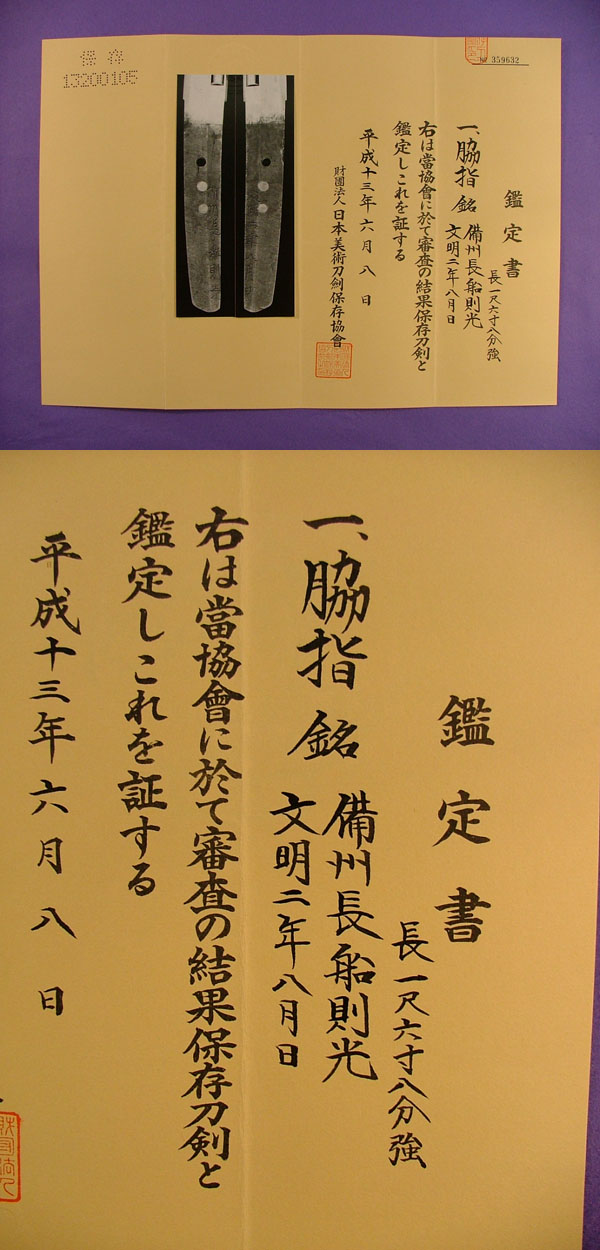 保存
13200105
No 359632
鑑定書
長一尺六寸八分強
一、脇指 銘 備州長船則光
文明二年八月日
右は當協會に於て審査の結果保存刀剣と
鑑定しこれを証する
平成十三年六月八日
財團法人 日本美術刀剣保存協會
鑑定書
長一尺六寸八分強
一、脇指 銘 備州長船則光
文明二年八月日
右は當協會に於て審査の結果保存刀剣と
鑑定しこれを証する
平成十三年六月八日